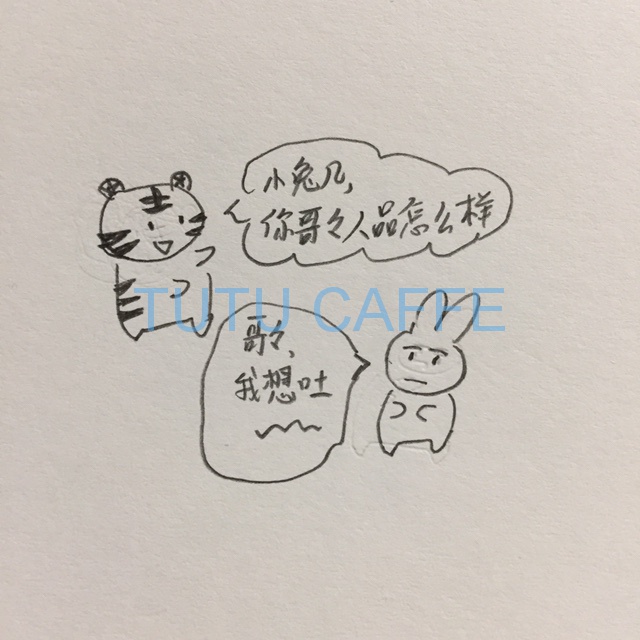 小兔几,
你哥々人品怎么样
TUTU CAFFE
哥々,
我想吐